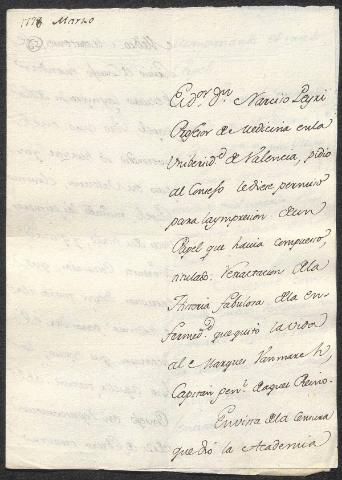 1778 Marzo
El dor. dn. Narciso Peyri
Profesor de Medicina en la
Unibersidd. de Valencia, pidio
al Consejo le diese permiso
para la ympresion de un
Papel que havia compuesto,
titulado: Veractacion de la
Historia fabulosa de la en-
fermedd. que quitó la vida
al Marques Vanmarck,
Capitan genl. de aquel Reino.
En vista de la censura
que dió la Academia